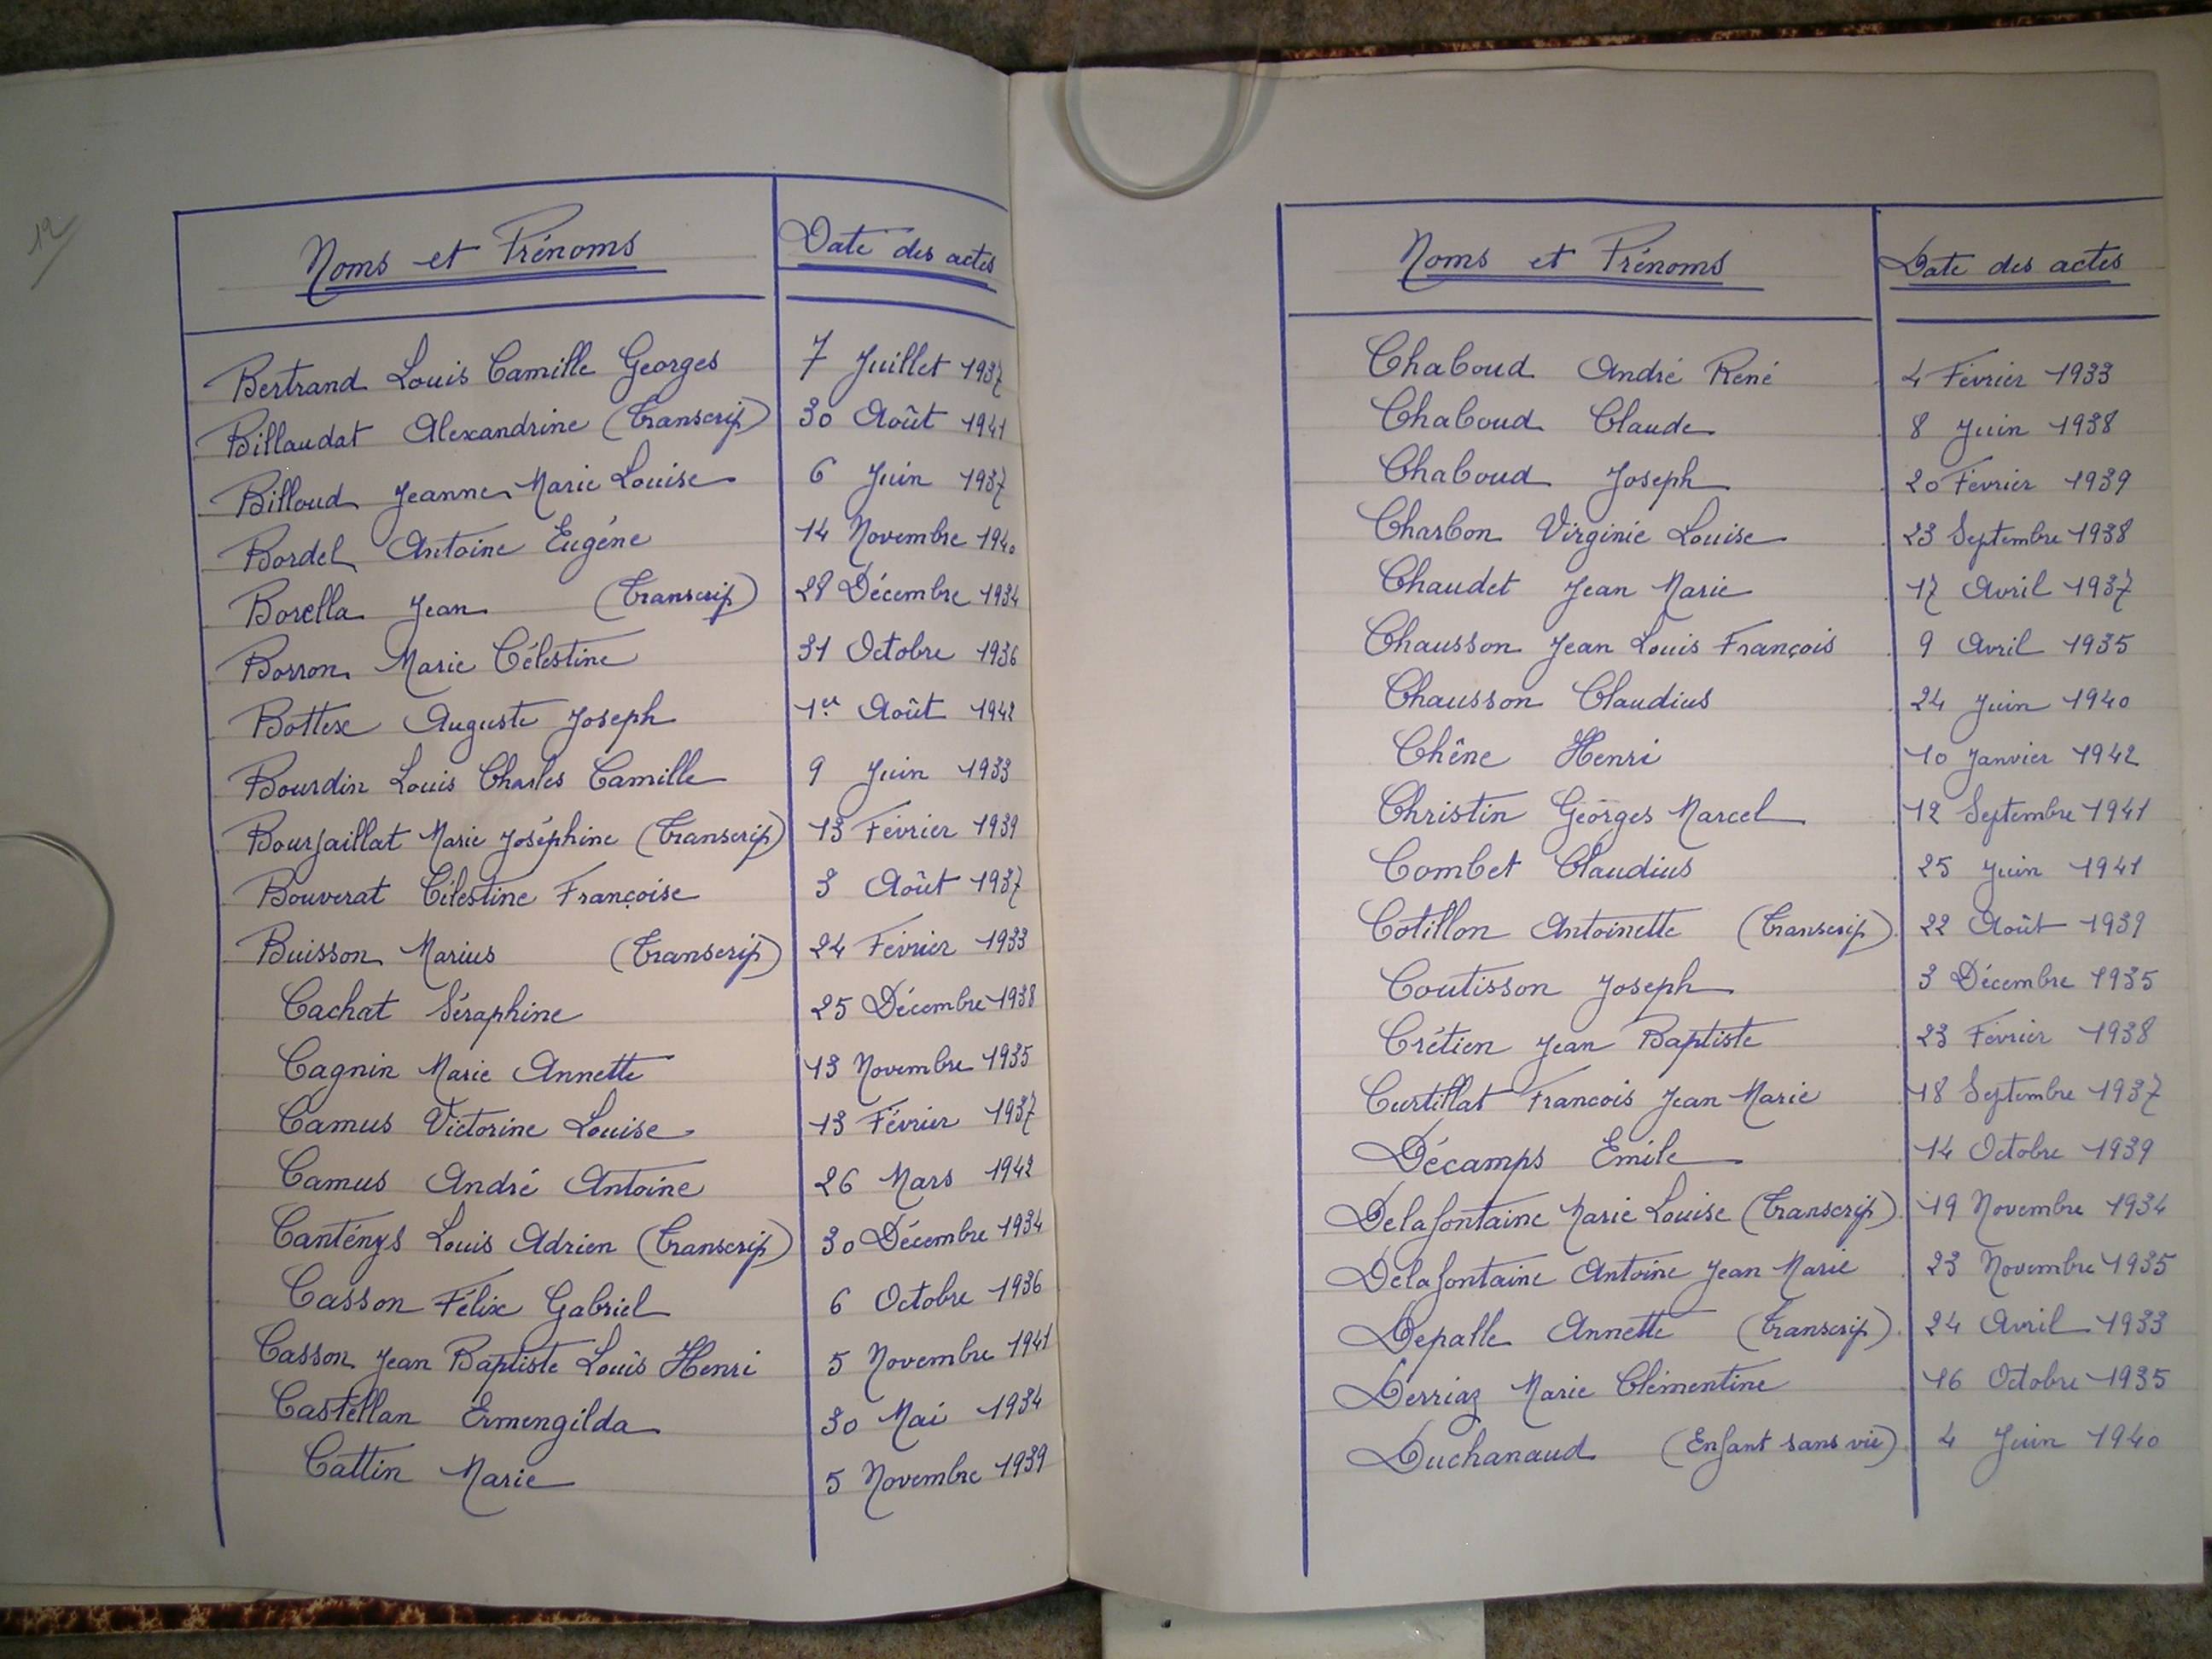 12
Noms et Prénoms Date des actes
Bertrand Louis Camille Georges 7 Juillet 1937
Billaudat Alexandrine (Transcrip) 30 Août 1941
Billoud Jeanne Marie Louise 6 Juin 1937
Bordel Antoine Eugène 14 Novembre 1940
Borella Jean (Transcrip) 28 Décembre 1934
Borron Marie Célestine 31 Octobre 1936
Bottex Auguste Joseph 1er Août 1942
Bourdin Louis Charles Camille 9 Juin 1933
Bourjaillat Marie Joséphine (Transcrip) 13 Février 1939
Bouverat Célestine Françoise 3 Août 1937
Buisson Marius (Transcrip) 24 Février 1933
Cachat Séraphine 25 Décembre 1938
Cagnin Marie Annette 13 Novembre 1935
Camus Victorine Louise 13 Février 1937
Camus André Antoine 26 Mars 1942
Canténys Louis Adrien (Transcrip) 30 Décembre 1934
Casson Félix Gabriel 6 Octobre 1936
Casson Jean Baptiste Louis Henri 5 Novembre 1941
Castellan Ermengilda 30 Mai 1934
Cattin Marie 5 Novembre 1939
Noms et Prénoms Date des actes
Chaboud André René 4 Février 1933
Chaboud Claude 8 Juin 1938
Chaboud Joseph 20 Février 1939
Charbon Virginie Louise 23 Septembre 1938
Chaudet Jean Marie 17 Avril 1937
Chausson Jean Louis François 9 Avril 1935
Chausson Claudius 24 Juin 1940
Chêne Henri 10 Janvier 1942
Christin Georges Marcel 12 Septembre 1941
Combet Claudius 25 Juin 1941
Cotillon Antoinette (Transcrip) 22 Août 1939
Coutisson Joseph 3 Décembre 1935
Crétien Jean Baptiste 23 Février 1938
Curtillat Francois Jean Marie 18 Septembre 1937
Décamps Emile 14 Octobre 1939
Delafontaine Marie Louise (Transcrip) 19 Novembre 1934
Delafontaine Antoine Jean Marie 23 Novembre 1935
Depalle Annette (Transcrip) 24 Avril 1933
Derriaz Marie Clémentine 16 Octobre 1935
Duchanaud (Enfant sans vie) 4 Juin 1940